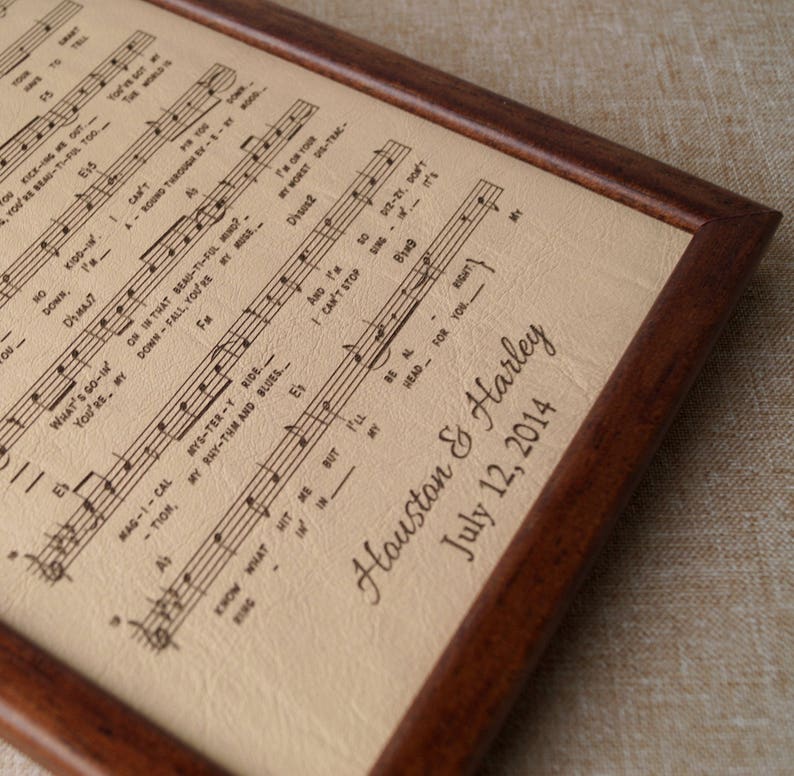 YOUR SMART
HAVE TO TELL
F5
YOU KICK-ING ME OUT. YOU'VE GOT MY
YOU'RE BEAU-TI-FUL TOO. THE WORLD IS
E♭5
NO KIDD-IN'. I CAN'T PIN YOU DOWN.
DOWN, I'M A-ROUND THROUGH EV-E-RY MOOD.
D♭MAJ7 A♭
WHAT'S GO-IN' ON IN THAT BEAU-TI-FUL MIND? I'M ON YOUR
YOU'RE MY DOWN-FALL, YOU'RE MY MUSE, MY WORST DIS-TRAC-
E♭ FM D♭SUS2
MAG-I-CAL MYS-TER-Y RIDE. AND I'M SO DIZ-ZY, DON'T
-TION, MY RHY-THM AND BLUES. I CAN'T STOP SING-IN'. IT'S
A♭ E♭ B♭M9
KNOW WHAT HIT ME BUT I'LL BE AL-RIGHT} MY
RING-IN' IN MY HEAD FOR YOU.
Houston & Harley
July 12, 2014